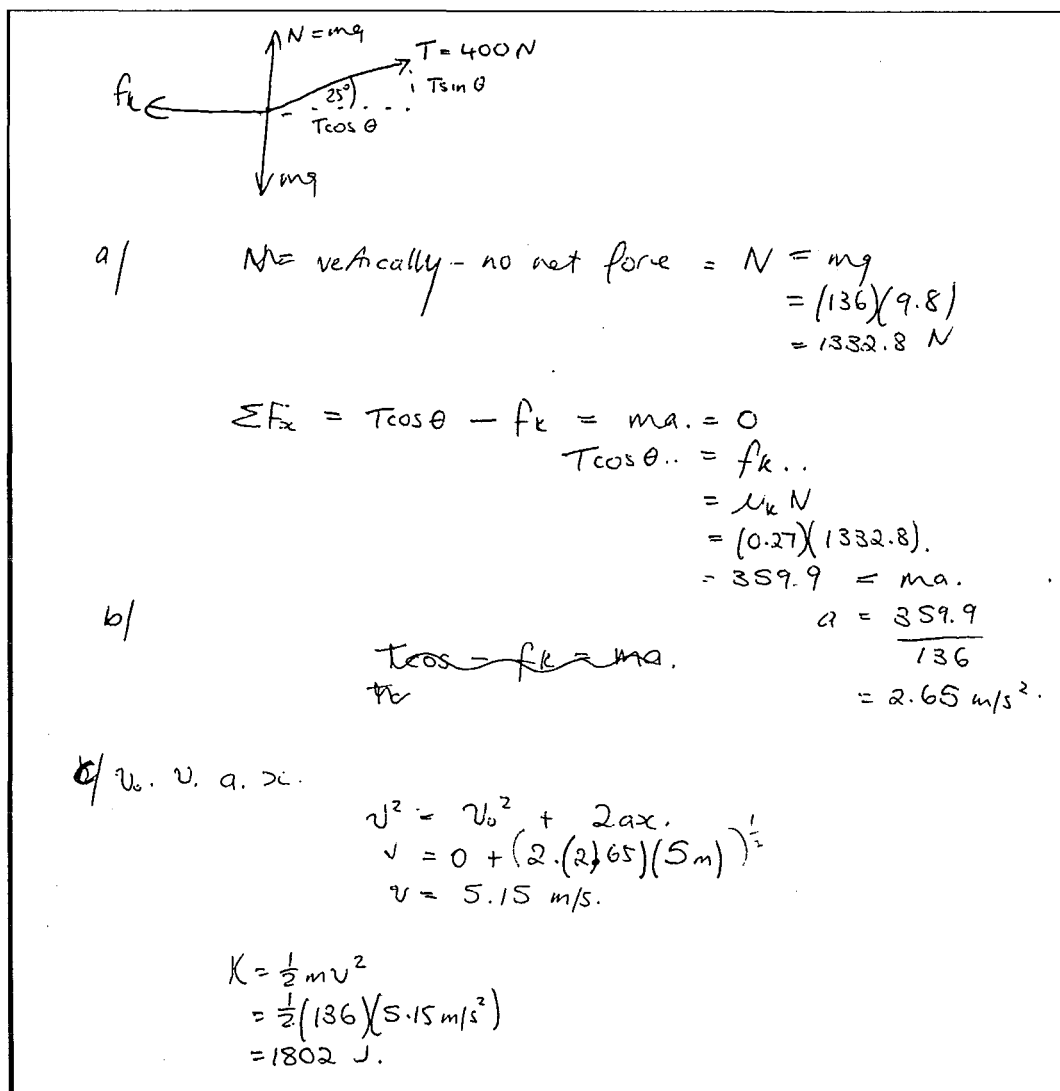 N = mg
T = 400 N
T sin θ
fk
25°
T cos θ
mg
a/ N = vertically - no net force = N = mg
= (136)(9.8)
= 1332.8 N
ΣFx = T cos θ - fk = ma. = 0
T cos θ .. = fk ..
= μk N
= (0.27)(1332.8).
= 359.9 = ma.
a = 359.9
136
= 2.65 m/s².
b/
Tcos - fk = ma.
c/ v₀. v. a. x.
v² = v₀² + 2ax.
v = 0 + (2.(2.65)(5m))^½
v = 5.15 m/s.
K = ½ mv²
= ½(136)(5.15 m/s²)
= 1802 J.